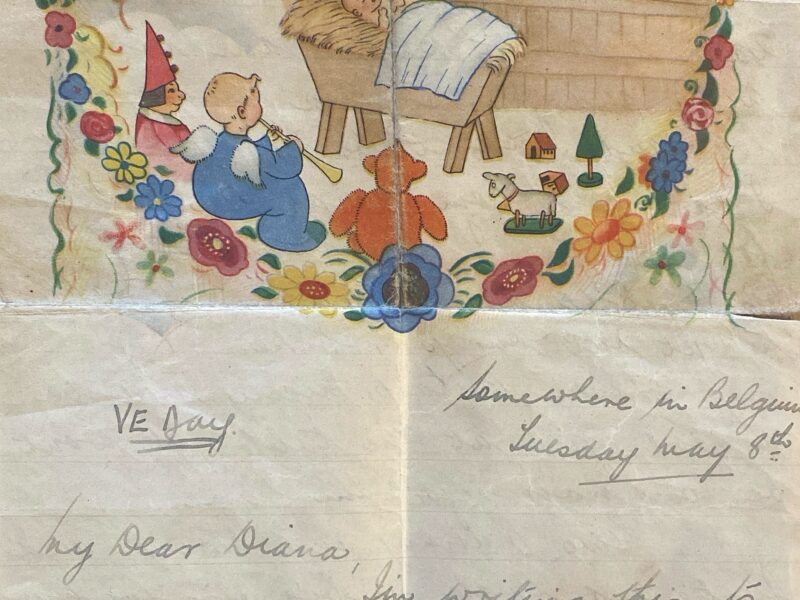 Somewhere in Belgium
VE Day.
Tuesday May 8th
My Dear Diana,
I'm writing this to